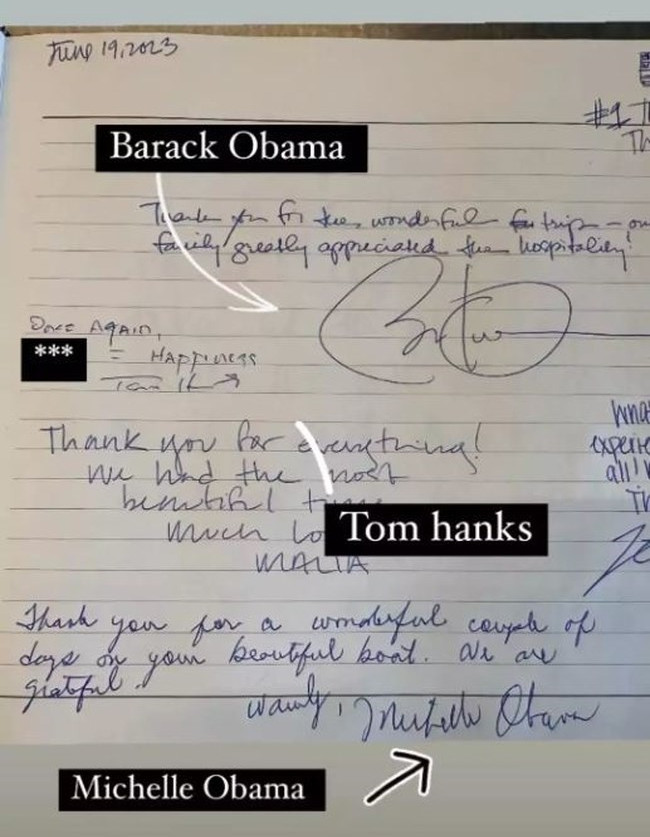 June 19, 2023
#1
Th
Barack Obama
Thank you for the wonderful trip — ou
family greatly appreciated the hospitality!
Once Again,
*** = Happiness
Thank you for everything!
We had the most
beautiful
much lo
MALIA
Tom hanks
What
experie
all!
Th
Thank you for a wonderful couple of
days on your beautiful boat. We are
grateful.
Warmly, Michelle Obama
Michelle Obama